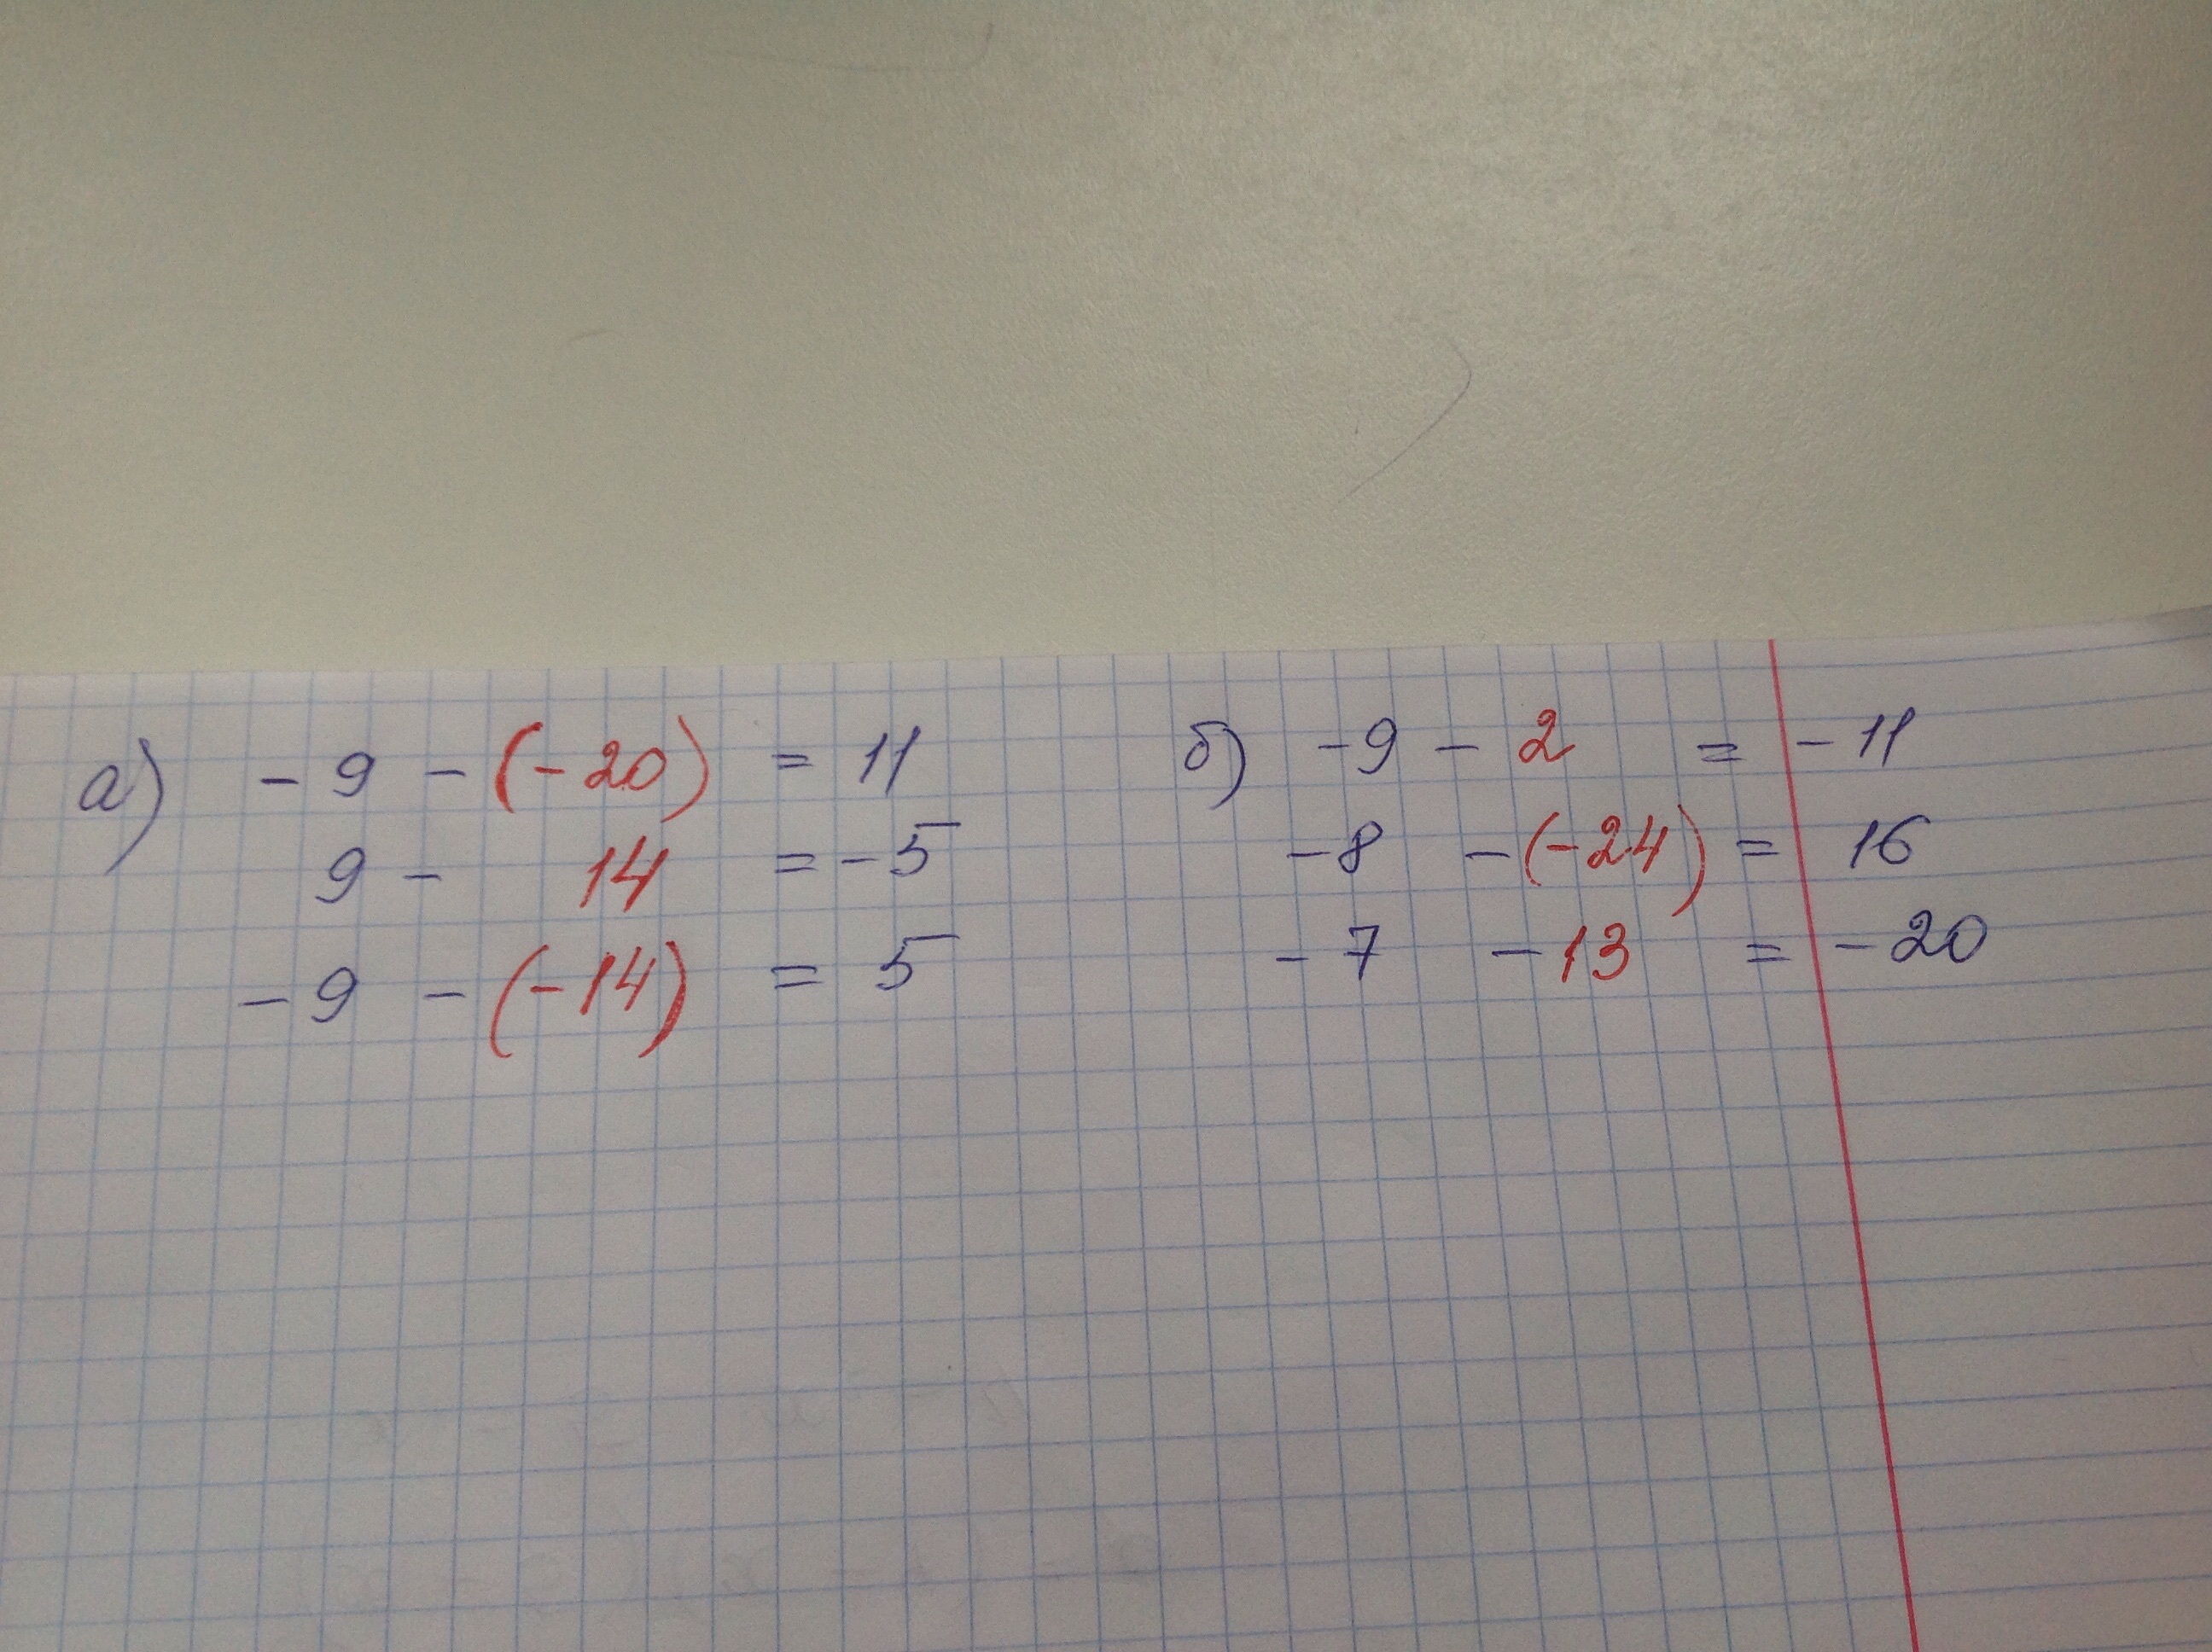 а) -9 - (-20) = 11
9 - 14 = -5
-9 - (-14) = 5
б) -9 - 2 = -11
-8 - (-24) = 16
-7 - 13 = -20